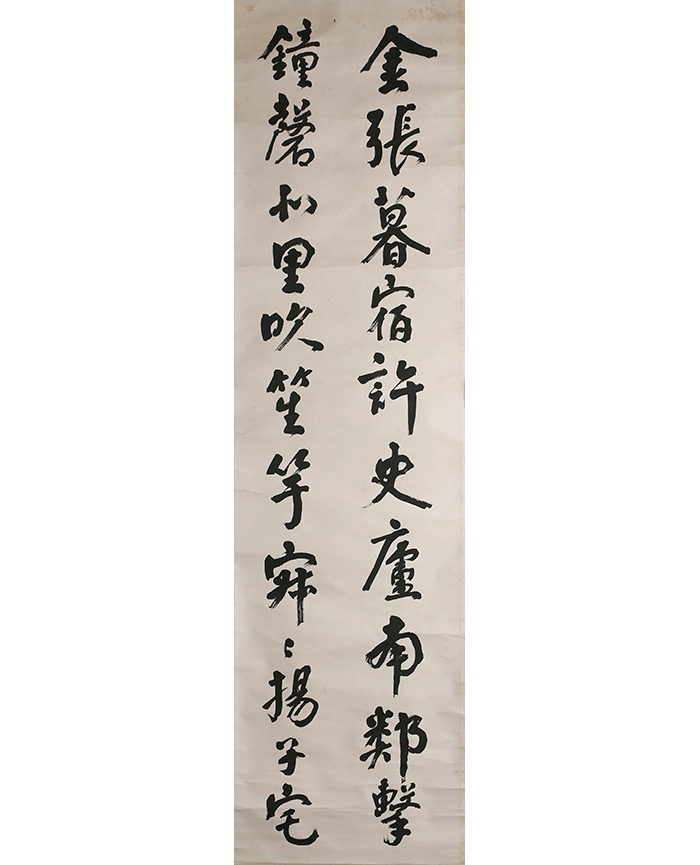 金張暮宿許史廬南鄰擊
鐘磬北里吹笙竽寂〻揚子宅